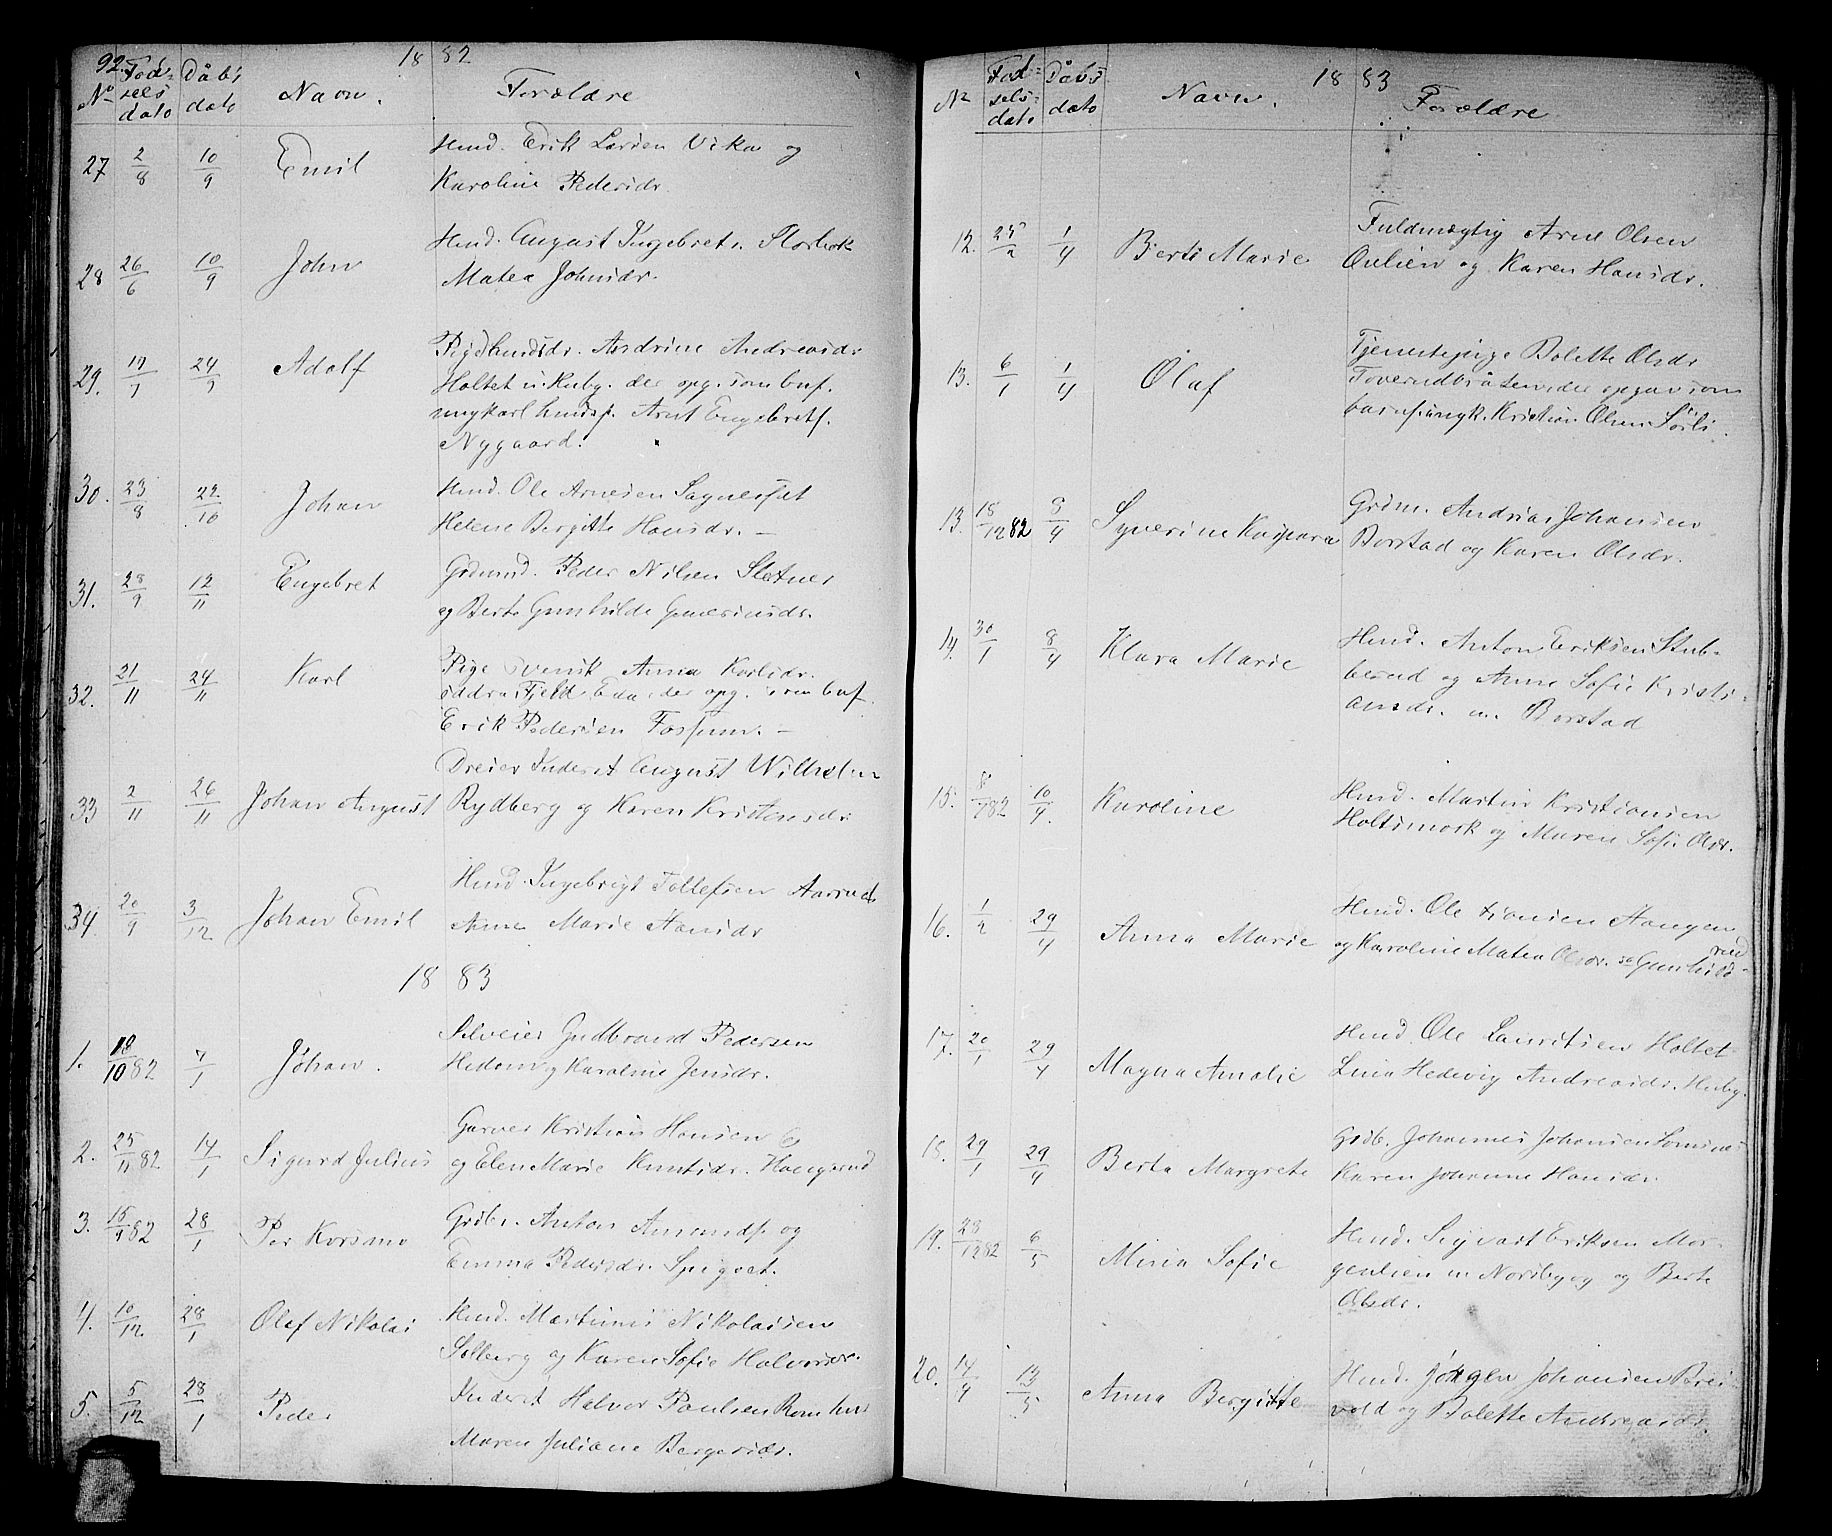 92.
18 82
No Fødselsdato Dåbsdato Navn. Forældre
27 2/8 10/9 Emil Hmd. Erik Larsen Vika og
Karoline Pedersdr.
28 26/6 10/9 John Hmd. August Ingebrets. Storbæk
Matea Johnsdr.
29. 24/9 Adolf Andrine Andreasdr
Holtet der opg. som buf.
ungkarl Arnt Engebretf.
Nygaard.
30. 23/8 22/10 Johan Hmd. Ole Arnesen
Helene Bergitte Hansdr. –
31. 28/9 12/11 Engebret Grdmnd. Peder Nilsen Sletner
og Berte Gunhilde
32. 21/11 24/11 Karl Pige svensk Anna Karlsdr.
Eda, der opg. som buf.
Erik Pedersen Fossum. –
33 2/11 26/11 Johan August Dreier Inderst August Wilhelm
Rydberg og Karen Kristensdr
34 20/9 3/12 Johan Emil Hmd. Ingebrigt Tollefsen Aasrud
Anne Marie Hansdr
18 83
1. 10/10 82 7/1 Johan. Selveier Gudbrand Pedersen
og Karoline Jensdr.
2. 25/11 82 14/1 Sigurd Julius Garver Kristian Hansen
og Elen Marie Knutsdr. Haugerud
3. 15/9 82 28/1 Per Korsmo Grdbr. Anton Amundf. og
Emma Pedersdr. Spigset.
4. 10/12. 28/1 Olaf Nikolai Hmd. Martinus Nikolaisen
Solberg og Karen Sofie Halvorsdr.
5. 5/12 28/1 Peder Inderst Halvor Paulsen
Maren Juliane Bergersdr.
18 83
No Fødselsdato Dåbsdato Navn. Forældre
12. 25/2 1/4 Berte Marie Fuldmægtig Arne Olsen
Øulien og Karen Hansdr.
13. 6/1 1/4 Olaf Tjenestepige Bolette Olsdr
der opgav som
barnf. ungk. Kristian Olsen Sørli.
13. 18/12 82 8/4 Synerine Kaspara Grdm. Andreas Johansen
Borstad og Karen Olsdr.
14. 30/1 8/4 Klara Marie Hmd. Anton Eriksen Stub-
berud og Anne Sofie Kristi-
ansdr. u. Borstad
15. 82 10/4. Karoline Hmd. Martin Kristiansen
Holtsmark og Maren Sofie Olsdr.
16. 1/2 29/4 Anna Marie Hmd. Ole Hansen Haugen
og Karoline Matea Olsdr. Gunhild-
rud
17. 20/1 29/4 Magna Amalie Hmd. Ole Lauritsen Holtet
Lina Hedevig Andreasdr.
18. 29/1 29/4 Berta Margrete Grdb. Johannes Johansen
Karen Johanne Hansdr.
19. 28/12 82 6/5 Mina Sofie Hmd. Sigvart Eriksen Mor-
genlien u. Nordbyog og Berte
Olsdr.
20. 14/4 13/5 Anna Bergitte Hmd. Jørgen Johansen Brei-
vold og Bolette Andreasdr.